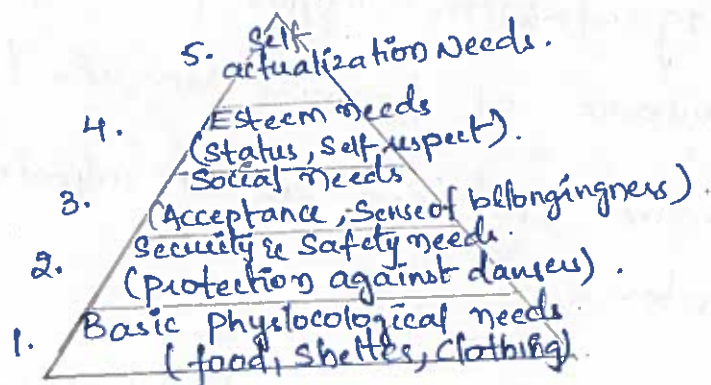 5. Self
actualization Needs.
4. Esteem needs
(Status, Self respect).
3. Social needs
(Acceptance, Sense of belongingness)
2. Security & Safety needs.
(protection against dangers).
1. Basic physlocological needs
(food, Shelter, Clothing)